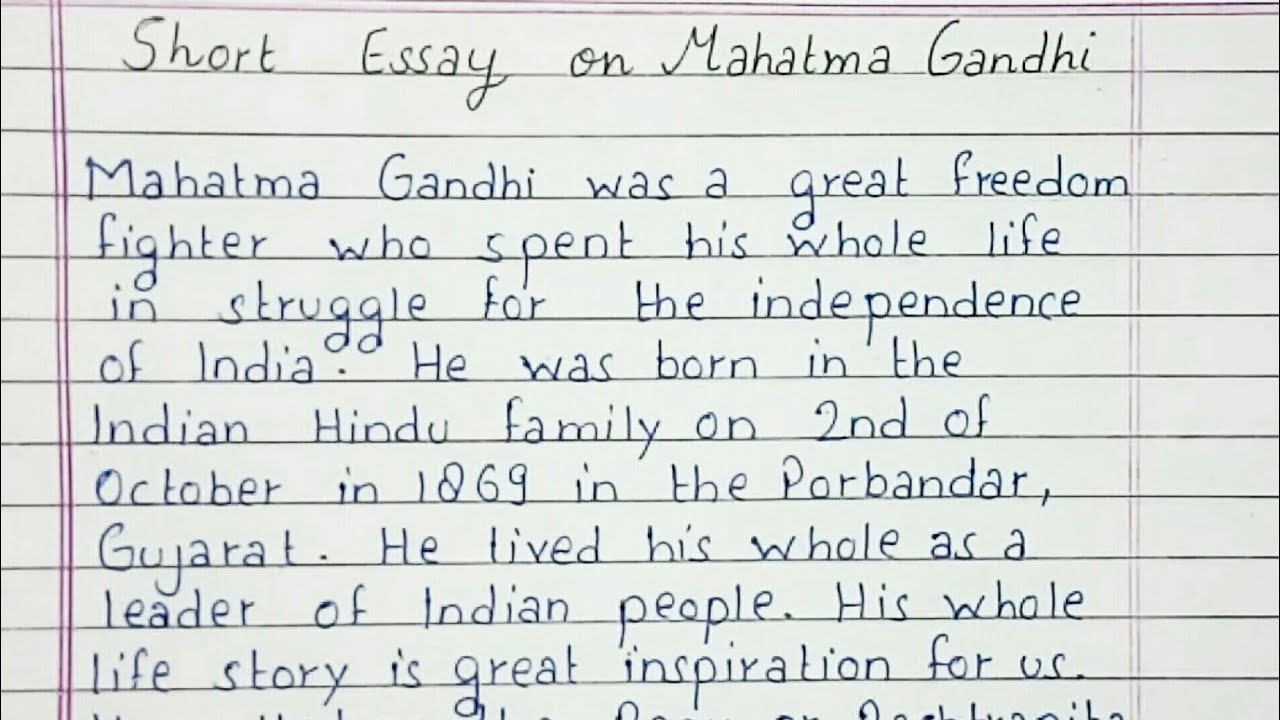 Short Essay on Mahatma Gandhi
Mahatma Gandhi was a great freedom
fighter who spent his whole life
in struggle for the independence
of India. He was born in the
Indian Hindu family on 2nd of
October in 1869 in the Porbandar,
Gujarat. He lived his whole as a
leader of Indian people. His whole
life story is great inspiration for us.